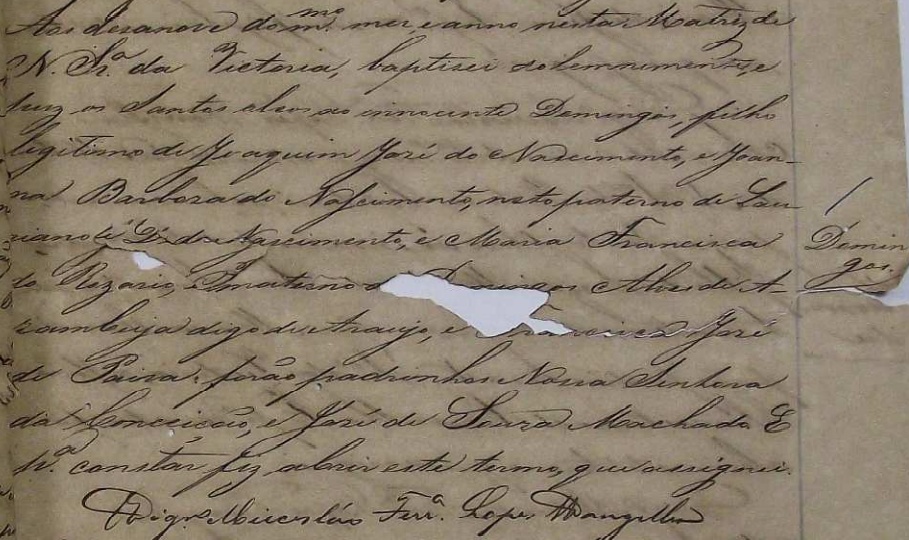 Aos desanove do m.mo mez, e anno nesta Matriz de
N. Sr.a da Victoria, baptisei solemnemente, e
puz os Santos oleos ao innocente Domingos, filho
legitimo de Joaquim José do Nascimento, e Joan-
na Barboza do Nascimento, neto paterno de Lau-
riano do Nascimento, e Maria Francisca
do Rozario, e materno Domingos Alves de A-
zambuja digo de Araujo, e Francisca José
de Paiva: forão padrinhos Nossa Senhora
da Conceição, e José de Souza Machado. E
p.a constar fiz abrir este termo, que assignei.
Vig.ro Miceslão Ferr.a Lopes Wangelles
Domin
gos.